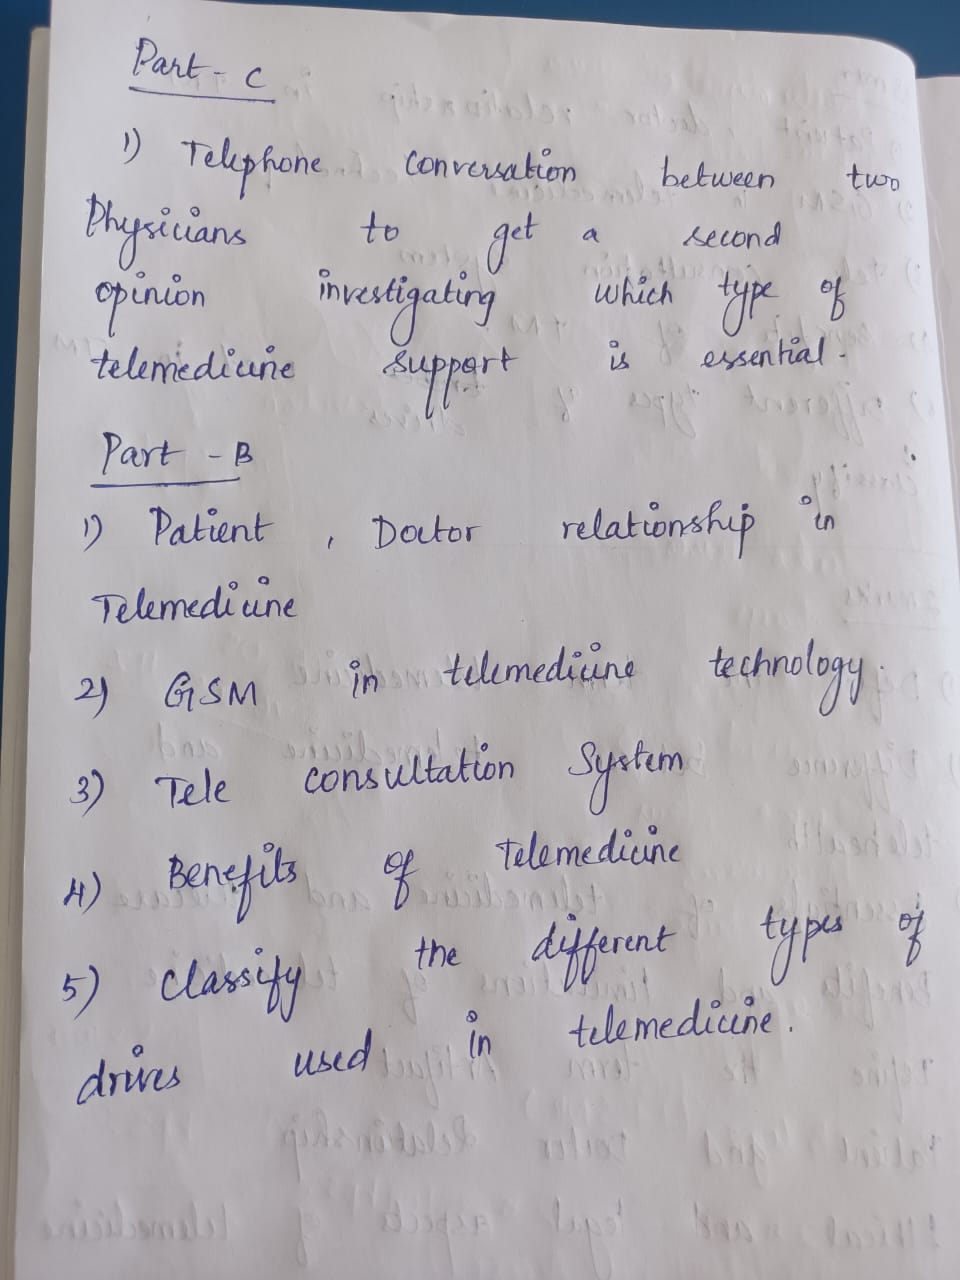 Part - C
1) Telephone conversation between two
Physicians to get a second
opinion investigating which type of
telemedicine support is essential.
Part - B
1) Patient, Doctor relationship in
Telemedicine
2) GSM in telemedicine technology.
3) Tele consultation System
4) Benefits of Telemedicine
5) Classify the different types of
drives used in telemedicine.